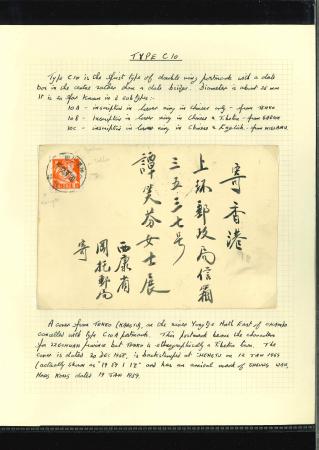 TYPE C10.
Type C10 is the first type of double ring postmark with a date
box in the centre rather than a date bridge. Diameter is about 26 mm
It is so far known in 3 subtypes:-
10A - inscription in lower ring in Chinese only - from
10B - Inscription in lower ring in Chinese & Tibetan - from
10C - inscription in lower ring in Chinese & English - from
寄香港
上环郵政局信箱
三五三七号
譚笑芬女士展
西康省
岡托郵局
寄
A cover from TOKEO (KANGTO), on the river Yangtze North East of CHAMDO
cancelled with type C10A postmark. This postmark bears the characters
for SZECHUAN province but TOKEO is ethnographically a Tibetan town. The
cover is dated 20 DEC 1958, is backstamped at CHENGTU on 12 JAN 1959
(actually shown as "19 59 1 12" and has an arrival mark of SHEUNG WAN,
HONG KONG dated 19 JAN 1959.